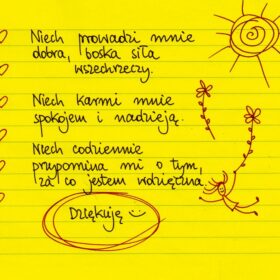 Niech prowadzi mnie
dobra, boska siła
wszechrzeczy.
Niech karmi mnie
spokojem i nadzieją.
Niech codziennie
przypomina mi o tym,
za co jestem wdzięczna.
Dziękuję